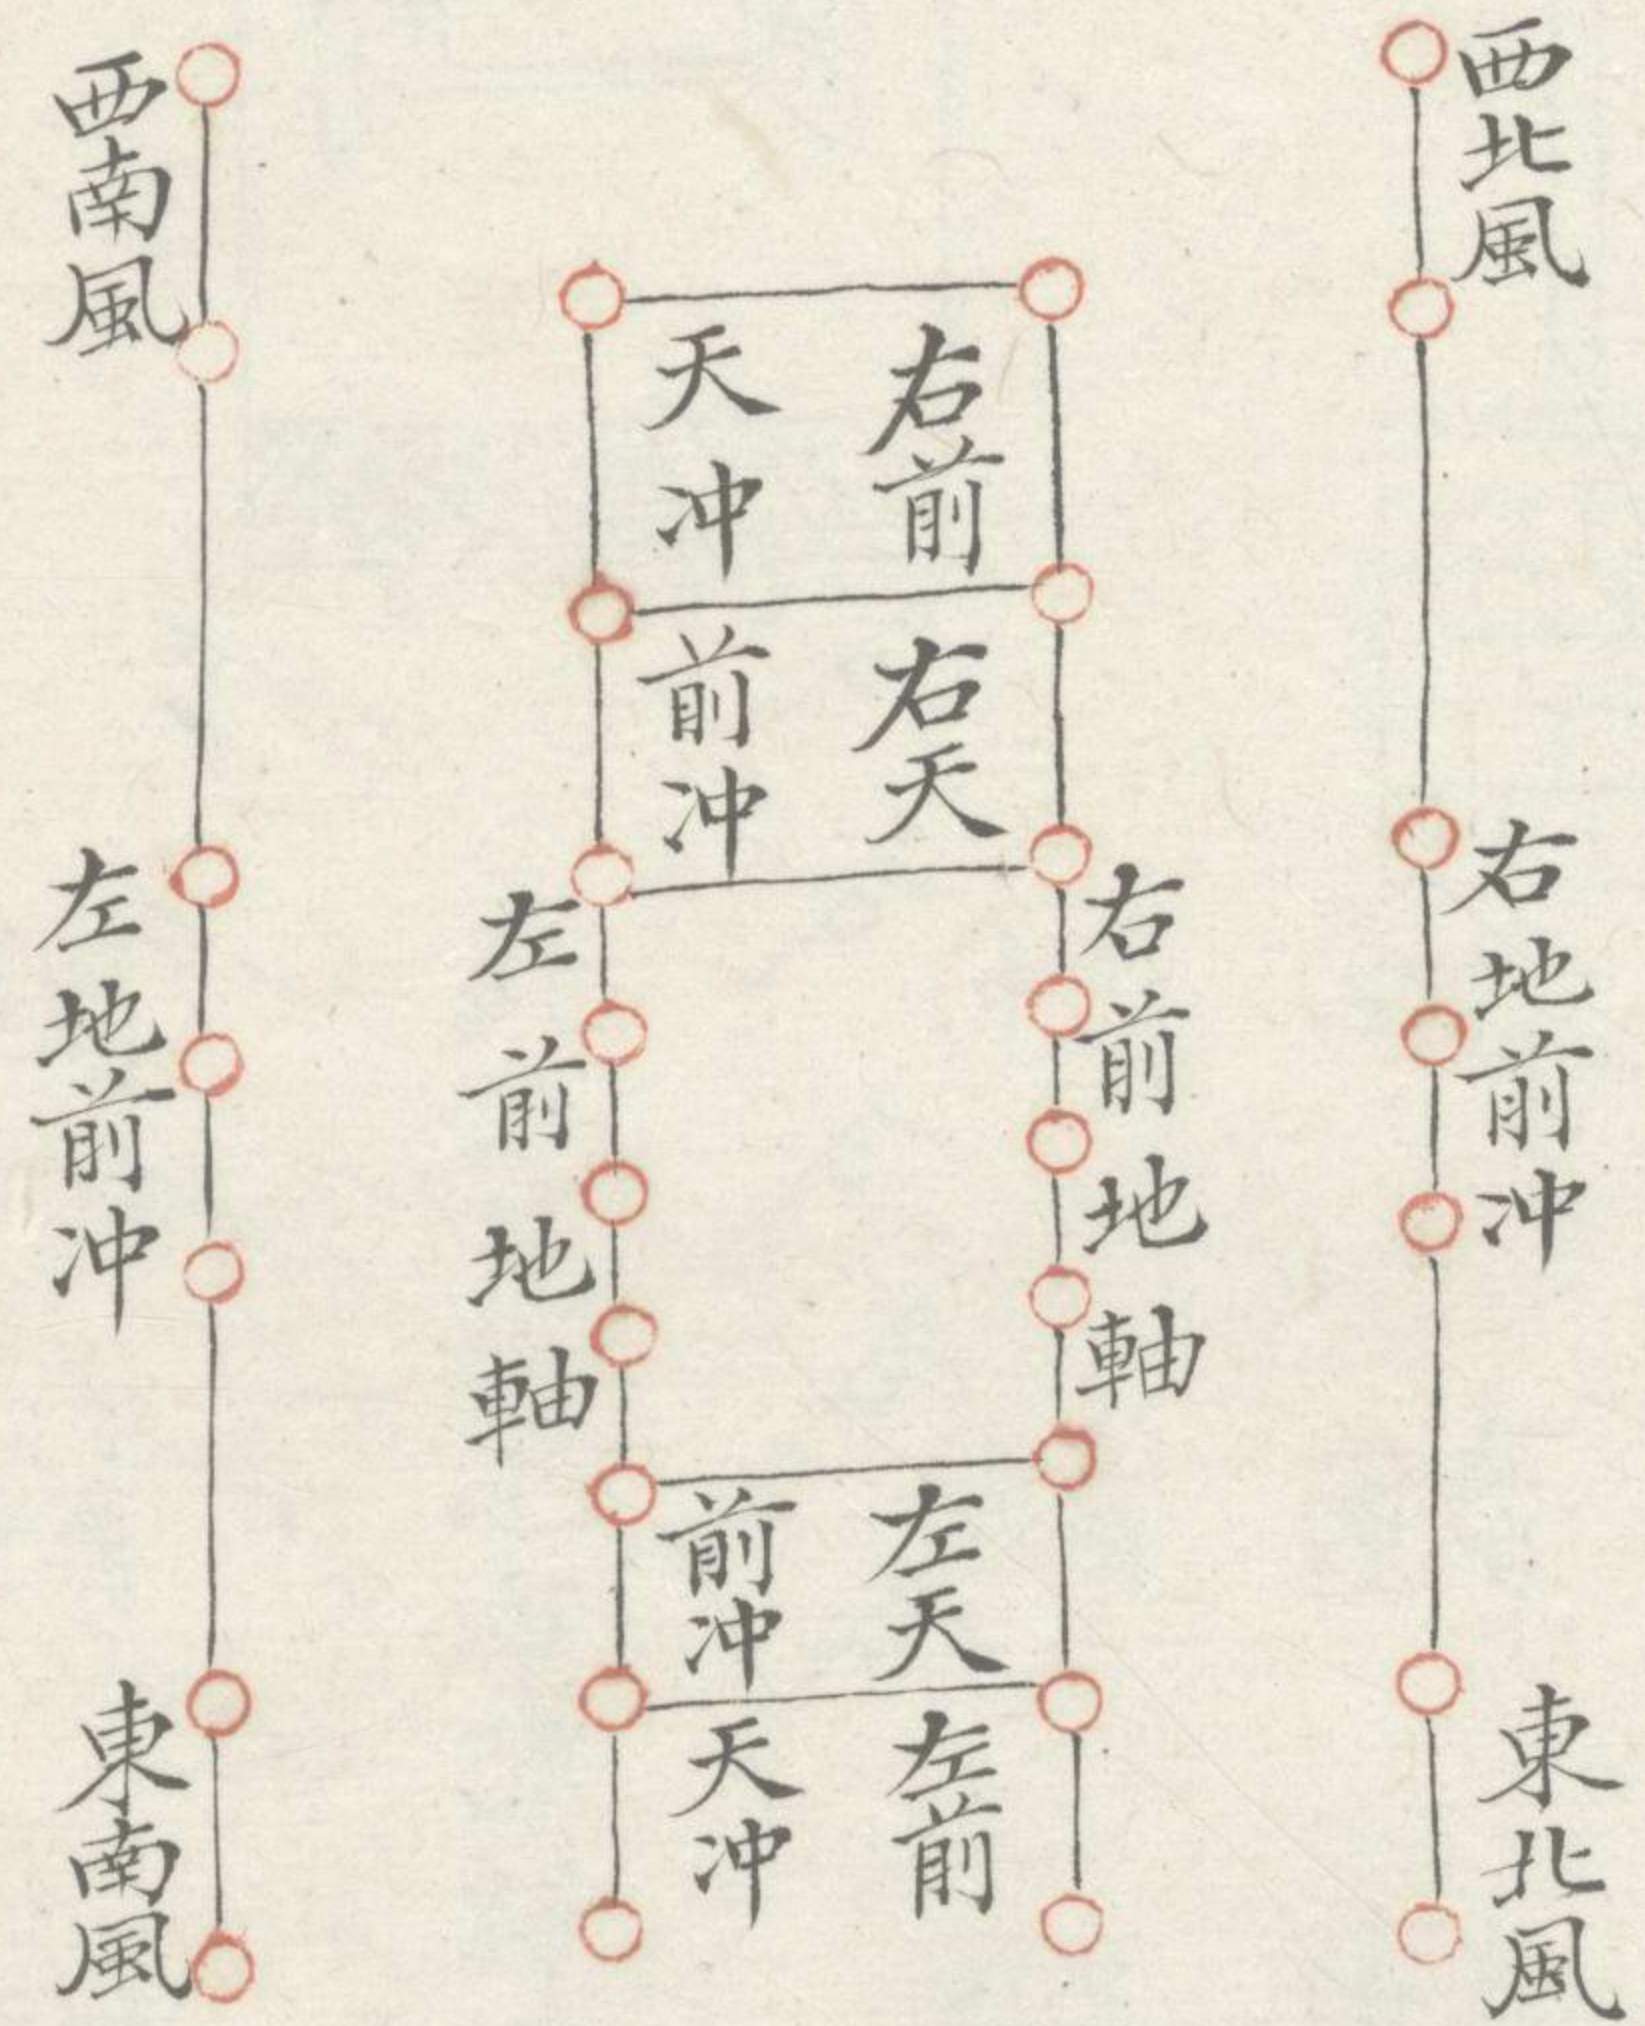 西北風
右地前冲
東北風
右前地軸
右前
天冲
右天
前冲
左天
前冲
左前
天冲
左前地軸
西南風
左地前冲
東南風